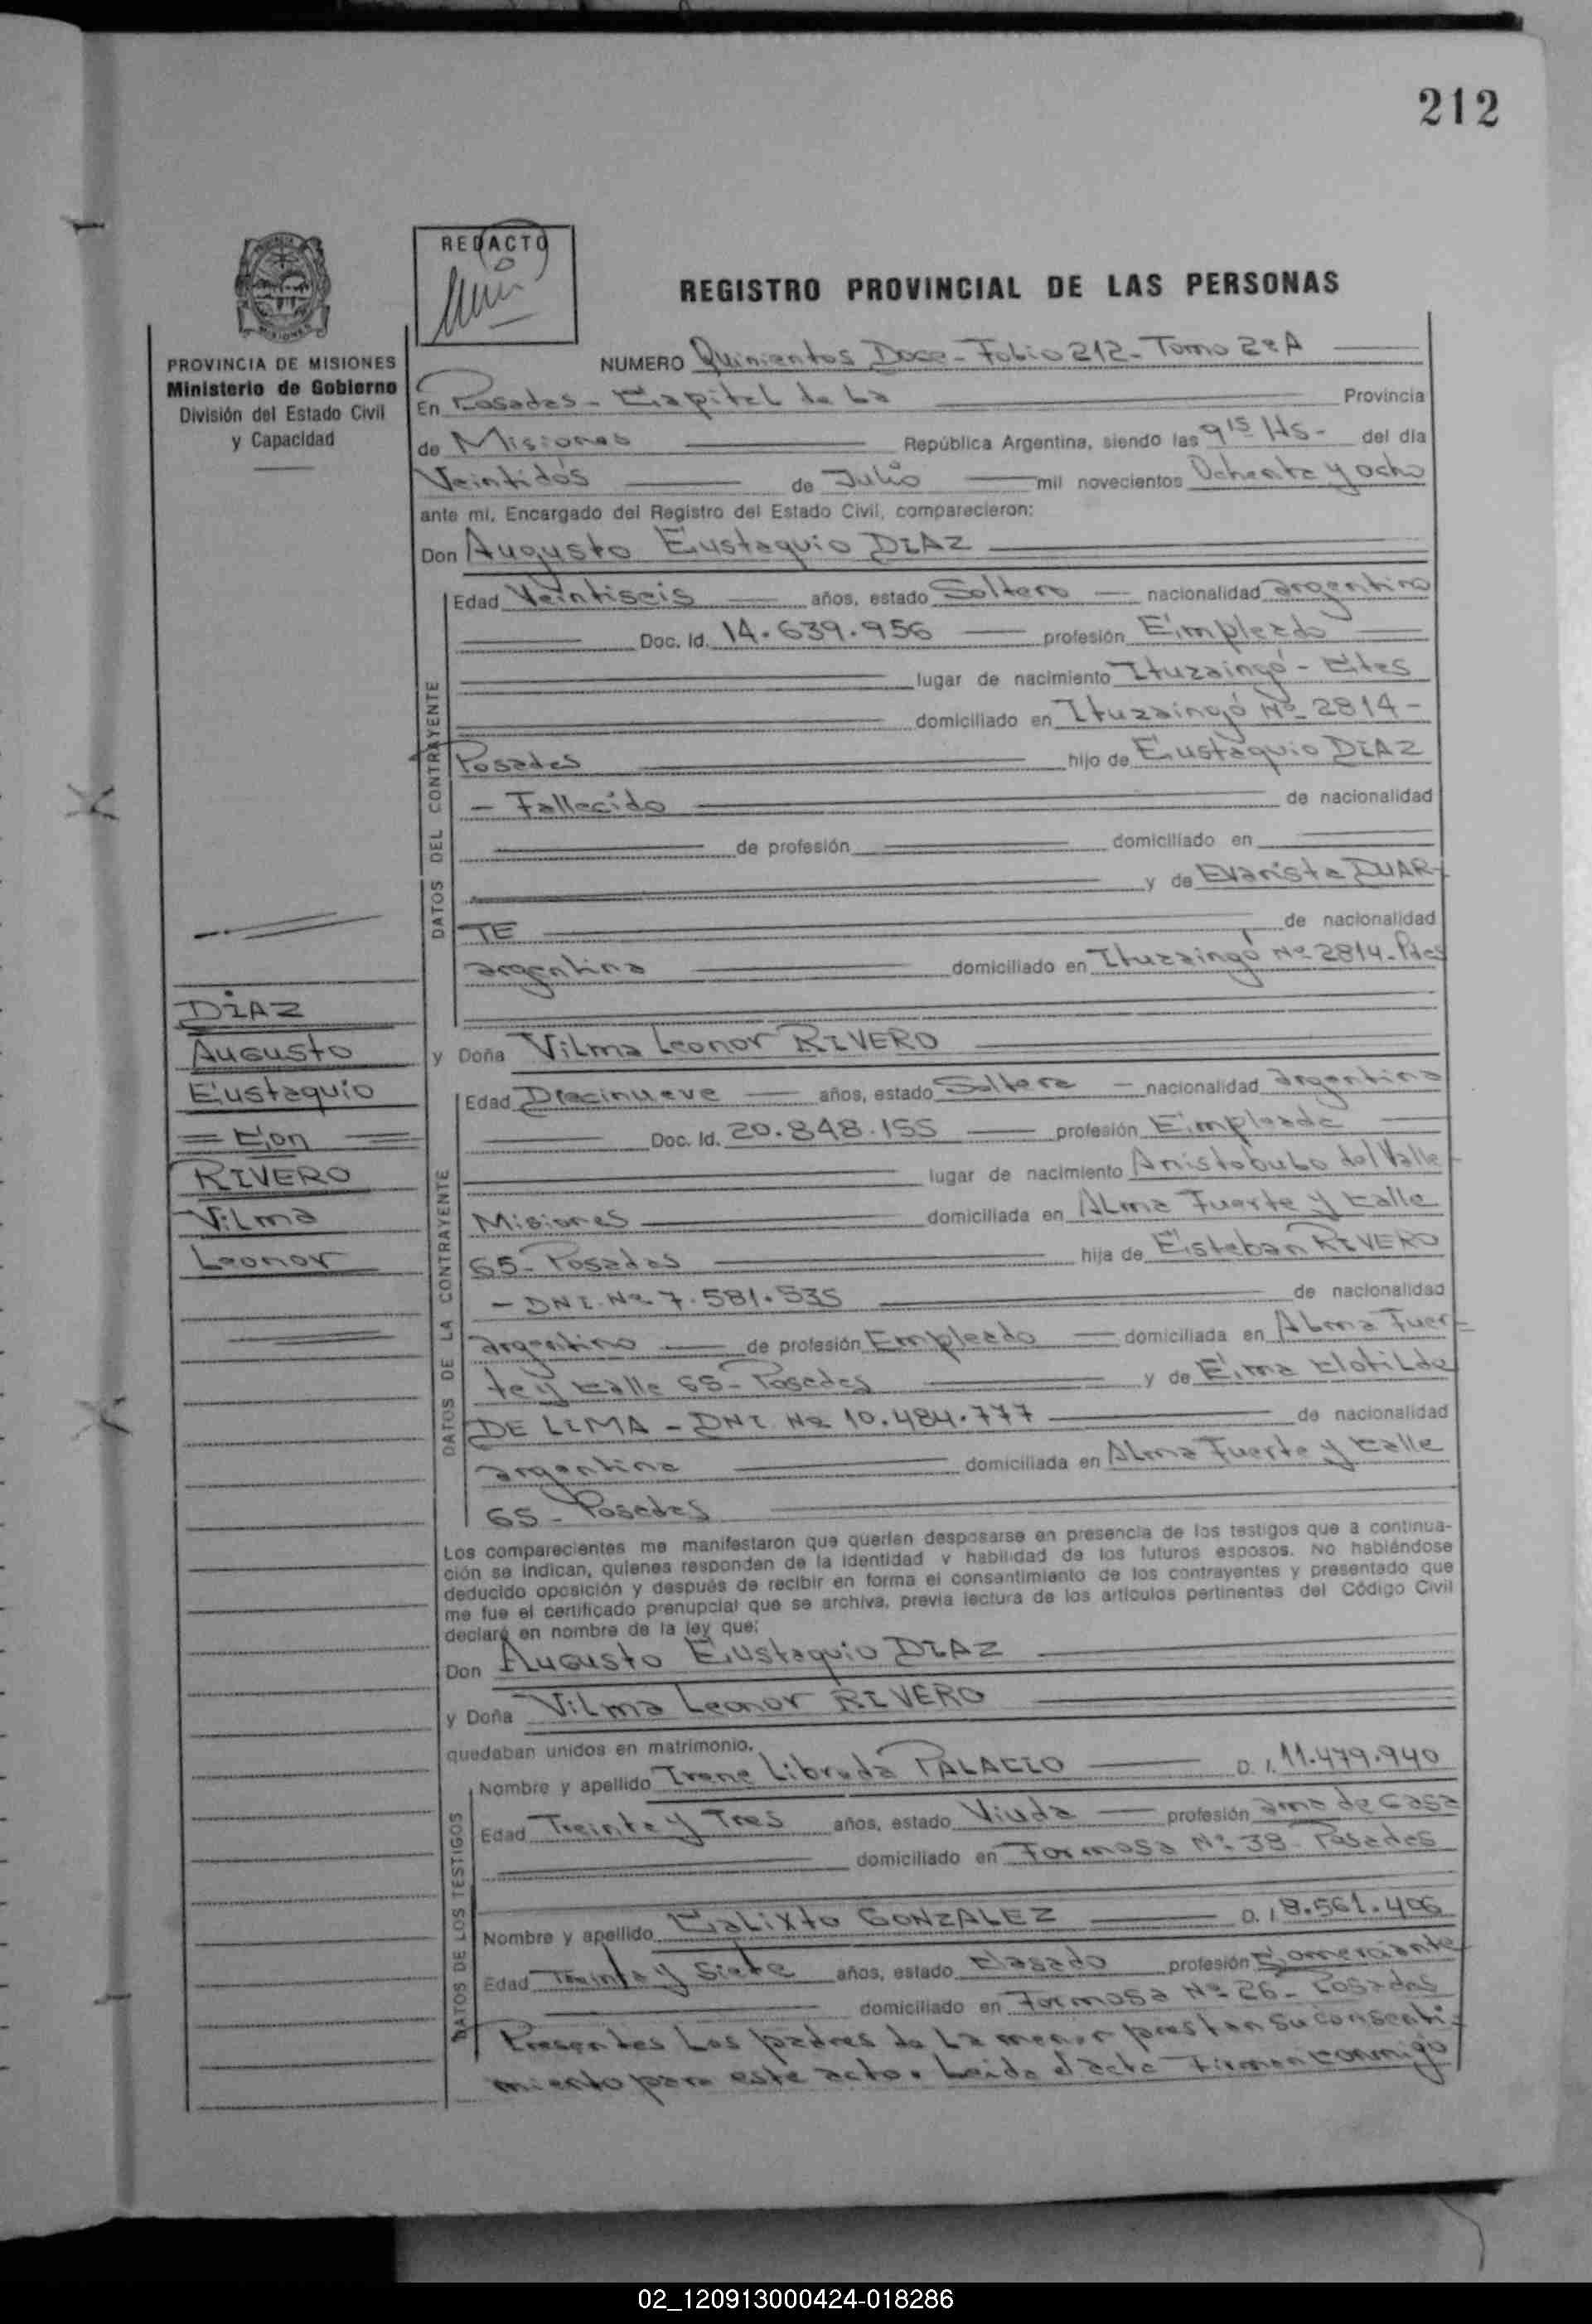 212
REDACTO
REGISTRO PROVINCIAL DE LAS PERSONAS
PROVINCIA DE MISIONES
Ministerio de Gobierno
División del Estado Civil
y Capacidad
NUMERO Quinientos Doce - Folio 212 - Tomo 2º A
En Posadas - Capital de La Provincia
de Misiones República Argentina, siendo las 9 15 Hs - del día
Veintidós de Julio mil novecientos Ochenta y ocho
ante mí, Encargado del Registro del Estado Civil, comparecieron:
Don Augusto Eustaquio DIAZ
DATOS DEL CONTRAYENTE
Edad Veintiseis años, estado Soltero nacionalidad argentino
Doc. Id. 14.639.956 profesión Empleado
lugar de nacimiento Ituzaingó - Ctes
domiciliado en Ituzaingó Nº 2814 -
Posadas hijo de Eustaquio DIAZ
- Fallecido de nacionalidad
de profesión domiciliado en
y de Evarista DUAR-
TE de nacionalidad
argentina domiciliado en Ituzaingó Nº 2814 - Pdas
DIAZ
Augusto
Eustaquio
= Con =
RIVERO
Vilma
Leonor
y Doña Vilma Leonor RIVERO
DATOS DE LA CONTRAYENTE
Edad Diecinueve años, estado Soltera nacionalidad argentina
Doc. Id. 20.848.155 profesión Empleada
lugar de nacimiento Aristobulo del Valle
Misiones domiciliada en Alma Fuerte y Calle
65 - Posadas hija de Esteban RIVERO
- DNI. Nº 7.581.535 de nacionalidad
argentino de profesión Empleado domiciliada en Alma Fuer-
te y Calle 65 - Posadas y de Elma Clotilde
DE LIMA - DNI Nº 10.484.777 de nacionalidad
argentina domiciliada en Alma Fuerte y Calle
65 - Posadas
Los comparecientes me manifestaron que querían desposarse en presencia de los testigos que a continua-
ción se indican, quienes responden de la identidad y habilidad de los futuros esposos. No habiéndose
deducido oposición y después de recibir en forma el consentimiento de los contrayentes y presentado que
me fue el certificado prenupcial que se archiva, previa lectura de los artículos pertinentes del Código Civil
declaré en nombre de la ley que:
Don Augusto Eustaquio DIAZ
y Doña Vilma Leonor RIVERO
quedaban unidos en matrimonio.
DATOS DE LOS TESTIGOS
Nombre y apellido Irene Librada PALACIO D. I. 11.479.940
Edad Treinta y Tres años, estado Viuda profesión ama de casa
domiciliado en Formosa Nº 38 - Posadas
Nombre y apellido Calixto GONZALEZ D. I 8.561.406
Edad Treinta y Siete años, estado Casado profesión Comerciante
domiciliado en Formosa Nº 26 - Posadas
Presentes Los padres de La menor prestan su consenti-
miento para este acto. Leída el acta Firman conmigo
02_120913000424-018286